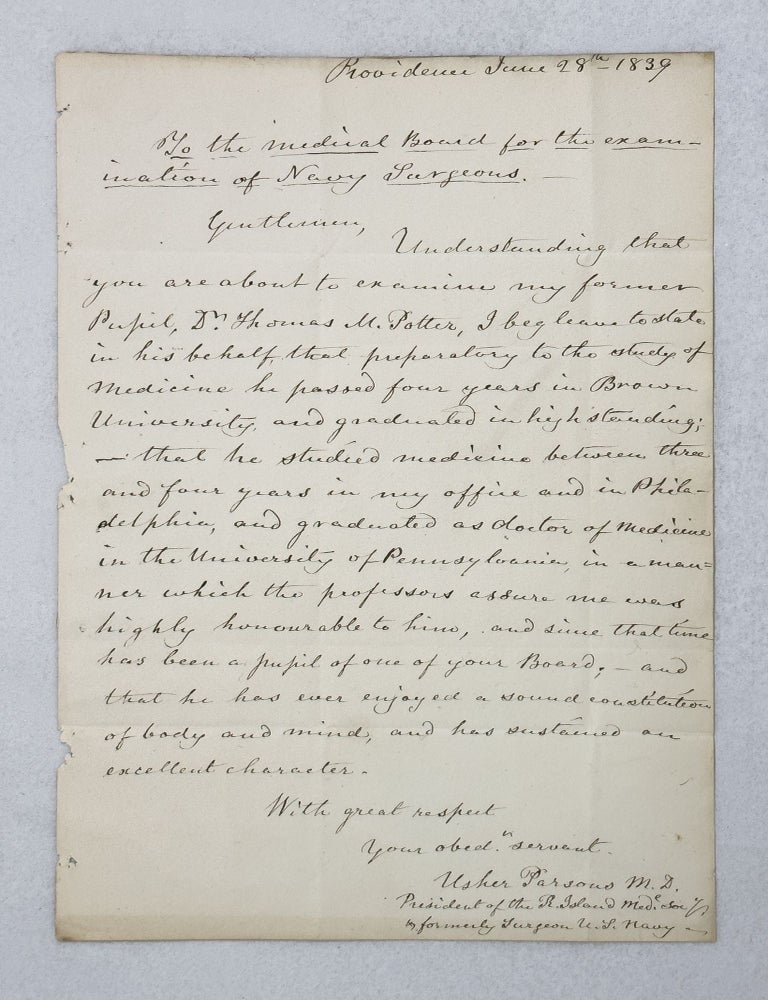 Providence June 28th 1839
To the medical Board for the exam-
ination of Navy Surgeons. —
Gentlemen,
Understanding that
you are about to examine my former
Pupil, Dr. Thomas M. Potter, I beg leave to state
in his behalf, that preparatory to the study of
Medicine he passed four years in Brown
University, and graduated in high standing;
— that he studied medicine between three
and four years in my office and in Phila-
delphia, and graduated as doctor of Medicine
in the University of Pennsylvania, in a man=
ner which the professors assure me was
highly honourable to him, and since that time
has been a pupil of one of your Board; — and
that he has ever enjoyed a sound constitution
of body and mind, and has sustained an
excellent character.
With great respect
Your obed.n servant.
Usher Parsons M.D.
President of the R. Island Med.c Socy
& formerly Surgeon U.S. Navy —